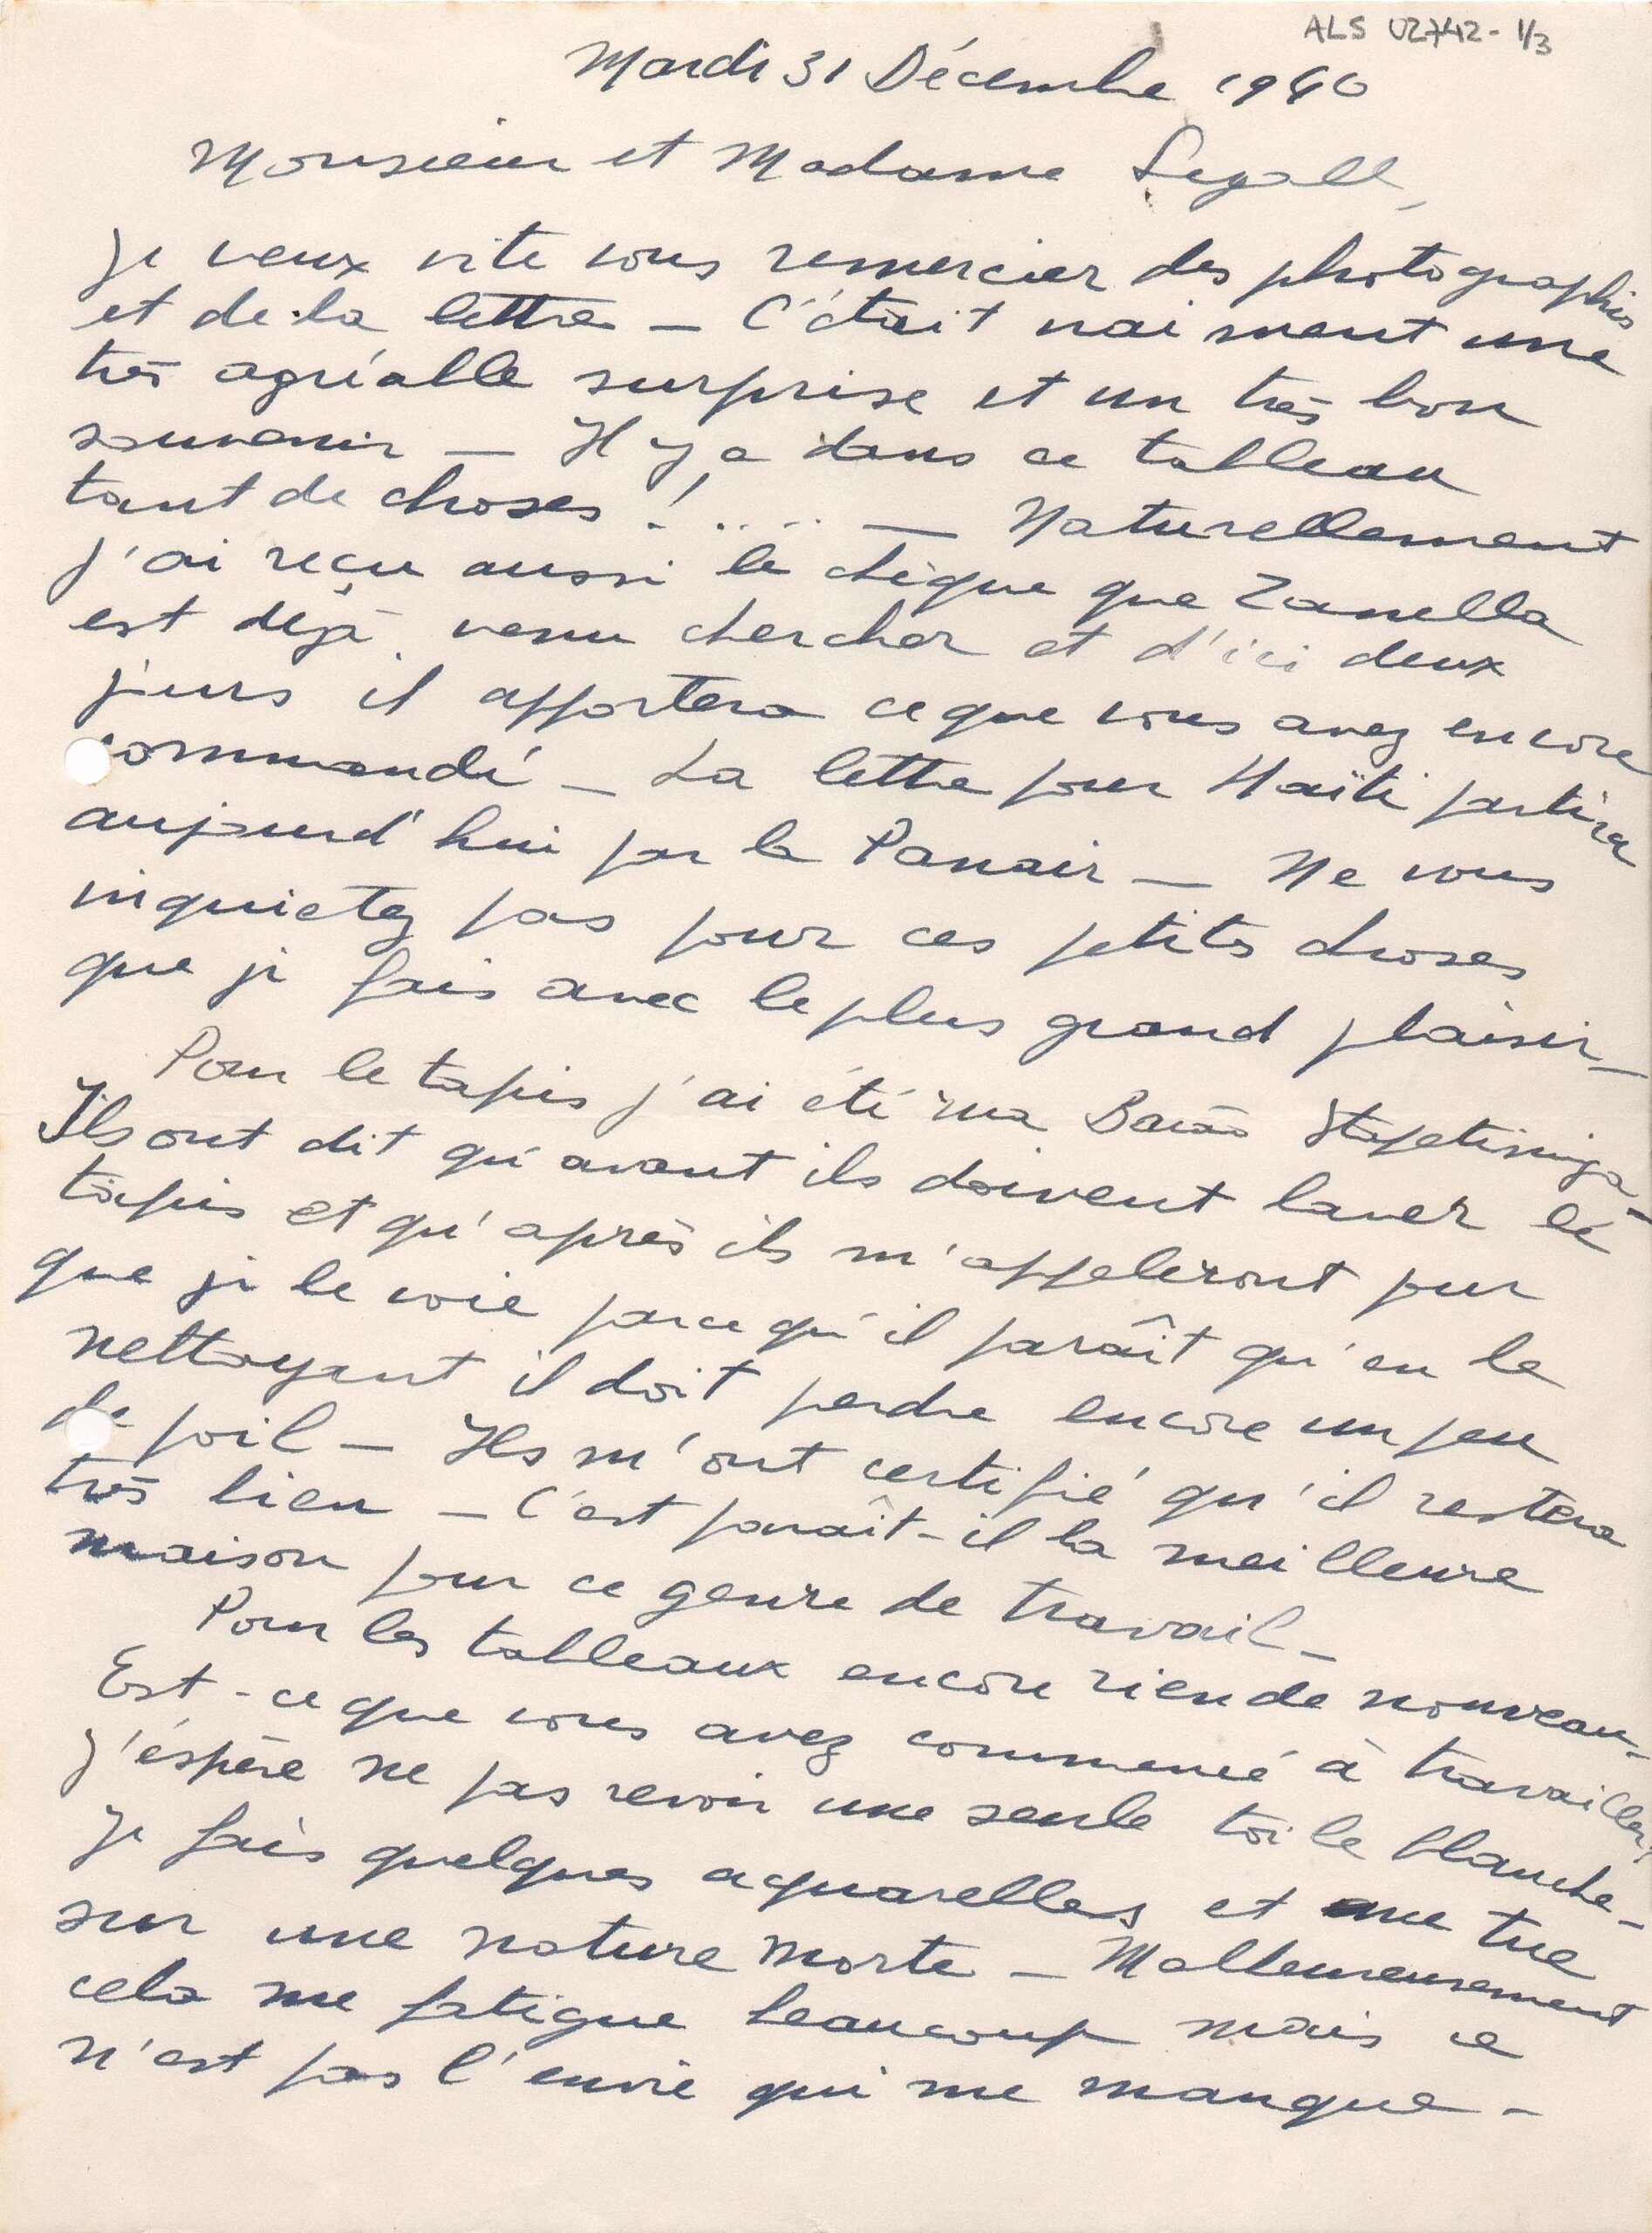 ALS 02742-1/3
Mardi 31 Décembre 1940
Monsieur et Madame Segall,
Je veux vite vous remercier des photographies
et de la lettre – C'était vraiment une
très agréable surprise et un très bon
souvenir – Il y a dans ce tableau
tant de choses ! .... – Naturellement
j'ai reçu aussi le chèque que Zanella
est déjà venu chercher et d'ici deux
jours il apportera ce que vous avez encore
commandé – La lettre pour Haïti partira
aujourd'hui par la Panair – Ne vous
inquietez pas pour ces petites choses
que je fais avec le plus grand plaisir –
Pour le tapis j'ai été na Barão Itapetininga –
Ils ont dit qu'avant ils doivent laver le
tapis et qu'après ils m'appeleront pour
que je le voie parce qu'il paraît qu'en le
nettoyant il doit perdre encore un peu
de poil – Ils m'ont certifié qu'il restera
très bien – C'est paraît-il la meilleure
maison pour ce genre de travail –
Pour les tableaux encore rien de nouveau –
Est-ce que vous avez commencé à travailler?
J'éspère ne pas revoir une seule toile blanche –
Je fais quelques aquarelles et me tue
sur une nature morte – Malheureusement
cela me fatigue beaucoup mais ce
n'est pas l'envie qui me manque –